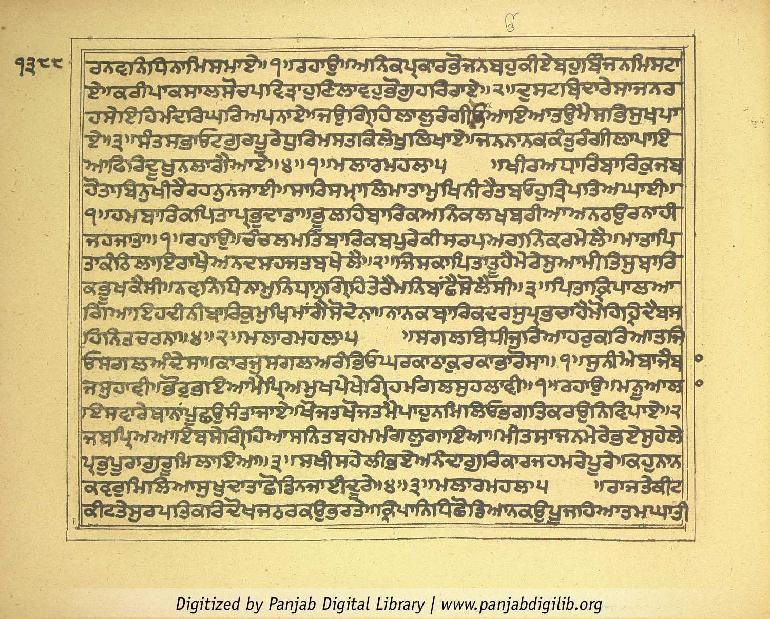 ੧੩੮੮
ਰਨਵਾਨਿਧਿਨਾਮਿਸਮਾਏ॥੧॥ਰਹਾਉ॥ਅਨਿਕਪ੍ਰਕਾਰਭੋਜਨਬਹੁਕੀਏਬਹੁਬਿੰਜਨਮਿਸਟਾ
ਏ॥ਕਰੀਪਾਕਸਾਲਸੋਚਪਵਿਤ੍ਰਾਹੁਣਿਲਾਵਹੁਭੋਗੁਹਰਿਰਾਏ॥੨॥ਦੁਸਟਬਿਦਾਰੇਸਾਜਨਰ
ਹਸੇਇਹਿਮੰਦਿਰਘਰਿਅਪਨਾਏ॥ਜਉਗ੍ਰਿਹਿਲਾਲੁਰੰਗੀਓਆਇਆਤਉਮੈਸਭਿਸੁਖਪਾ
ਏ॥੩॥ਸੰਤਸਭਾਓਟਗੁਰਪੂਰੇਧੁਰਿਮਸਤਕਿਲੇਖੁਲਿਖਾਏ॥ਜਨਨਾਨਕਕੰਤੁਰੰਗੀਲਾਪਾਇ
ਆਫਿਰਿਦੂਖੁਨਲਾਗੈਆਏ॥੪॥੧॥ਮਲਾਰਮਹਲਾ੫ ॥ਖੀਰਅਧਾਰਿਬਾਰਿਕੁਜਬ
ਹੋਤਾਬਿਨੁਖੀਰੈਰਹਨੁਨਜਾਈ॥ਸਾਰਿਸਮ੍ਹਾਲਿਮਾਤਾਮੁਖਿਨੀਰੈਤਬਓਹੁਤ੍ਰਿਪਤਿਅਘਾਈ॥
੧॥ਹਮਬਾਰਿਕਪਿਤਾਪ੍ਰਭੁਦਾਤਾ॥ਭੂਲਹਿਬਾਰਿਕਅਨਿਕਲਖਬਰੀਆਅਨਠਉਰਨਾਹੀ
ਜਹਜਾਤਾ॥੧॥ਰਹਾਉ॥ਚੰਚਲਮਤਿਬਾਰਿਕਬਪੁਰੇਕੀਸਰਪਅਗਨਿਕਰਮੇਲੈ॥ਮਾਤਾਪਿ
ਤਾਕੰਠਿਲਾਇਰਾਖੈਅਨਦਸਹਜਤਬਖੇਲੈ॥੨॥ਜਿਸਕਾਪਿਤਾਤੂਹੈਮੇਰੇਸੁਆਮੀਤਿਸੁਬਾਰਿ
ਕਭੂਖਕੈਸੀ॥ਨਵਨਿਧਿਨਾਮੁਨਿਧਾਨੁਗ੍ਰਿਹਿਤੇਰੈਮਨਿਬਾਂਛੈਸੋਲੈਸੀ॥੩॥ਪਿਤਾਕ੍ਰਿਪਾਲਆ
ਗਿਆਇਹਦੀਨੀਬਾਰਿਕੁਮੁਖਿਮਾਂਗੈਸੋਦੇਨਾ॥ਨਾਨਕਬਾਰਿਕਦਰਸੁਪ੍ਰਭਚਾਹੈਮੋਹਿਹ੍ਰਿਦੈਬਸ
ਹਿਨਿਤਚਰਨਾ॥੪॥੨॥ਮਲਾਰਮਹਲਾ੫ ॥ਸਗਲਬਿਧੀਜੁਰਿਆਹਰੁਕਰਿਆਤਜਿ
ਓਸਗਲਅੰਦੇਸਾ॥ਕਾਰਜੁਸਗਲਅਰੰਭਿਓਘਰਕਾਠਾਕੁਰਕਾਭਾਰੋਸਾ॥੧॥ਸੁਨੀਐਬਾਜੈਬ
ਜਸੁਹਾਵੀ॥ਭੋਰੁਭਇਆਮੈਪ੍ਰਿਅਮੁਖਪੇਖੇਗ੍ਰਿਹਿਮੰਗਲਸੁਹਲਾਵੀ॥੧॥ਰਹਾਉ॥ਮਨੂਆਲ
ਾਇਸਵਾਰੇਥਾਨਾਂਪੂਛਉਸੰਤਾਜਾਏ॥ਖੋਜਤਖੋਜਤਮੈਪਾਹੁਨਮਿਲਿਓਭਗਤਿਕਰਉਨਿਵਿਪਾਏ॥੨
ਜਬਪ੍ਰਿਅਆਇਬਸੇਗ੍ਰਿਹਿਆਸਨਿਤਬਹਮਮੰਗਲੁਗਾਇਆ॥ਮੀਤਸਾਜਨਮੇਰੇਭਏਸੁਹੇਲੇ
ਪ੍ਰਭੁਪੂਰਾਗੁਰੂਮਿਲਾਇਆ॥੩॥ਸਖੀਸਹੇਲੀਭਏਅਨੰਦਾਗੁਰਿਕਾਰਜਹਮਰੇਪੂਰੇ॥ਕਹੁਨਾਨ
ਕਵਰੁਮਿਲਿਆਸੁਖਦਾਤਾਛੋਡਿਨਜਾਈਦੂਰੇ॥੪॥੩॥ਮਲਾਰਮਹਲਾ੫ ॥ਰਾਜਤੇਕੀਟ
ਕੀਟਤੇਸੁਰਪਤਿਕਰਿਦੋਖਜਠਰਕਉਭਰਤੇ॥ਕ੍ਰਿਪਾਨਿਧਿਛੋਡਿਆਨਕਉਪੂਜਹਿਆਤਮਘਾਤੀ
Digitized by Panjab Digital Library | www.panjabdigilib.org